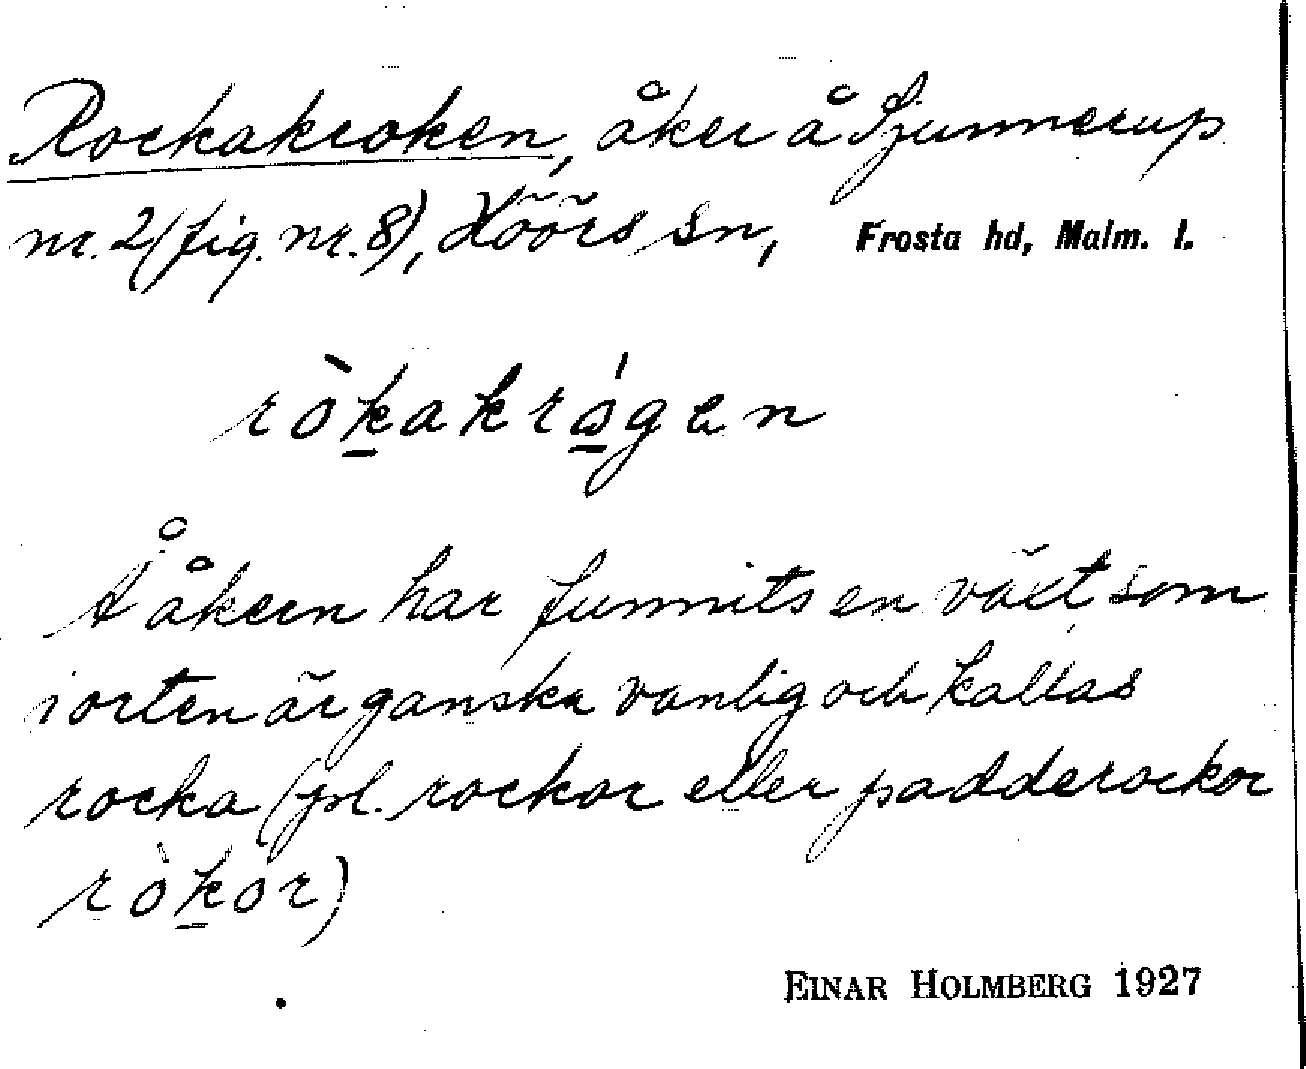 Rockakroken, åker å Sjunnerup
nr. 2 (fig. nr. 8), Höörs sn, Frosta hd, Malm. l.
ròkakrógen
Å åkern har funnits en växt som
i orten är ganska vanlig och kallas
rocka (pl. rockor eller padderockor
ròkor)
EINAR HOLMBERG 1927